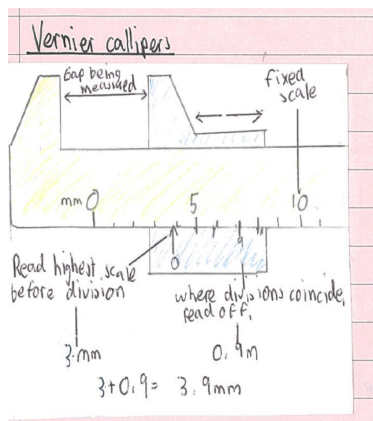 Vernier callipers
Gap being
measured
fixed
scale
mm 0 5 10
0 9
Read highest scale
before division
where divisions coincide,
read off.
3mm
0.9m
3+0.9= 3.9mm